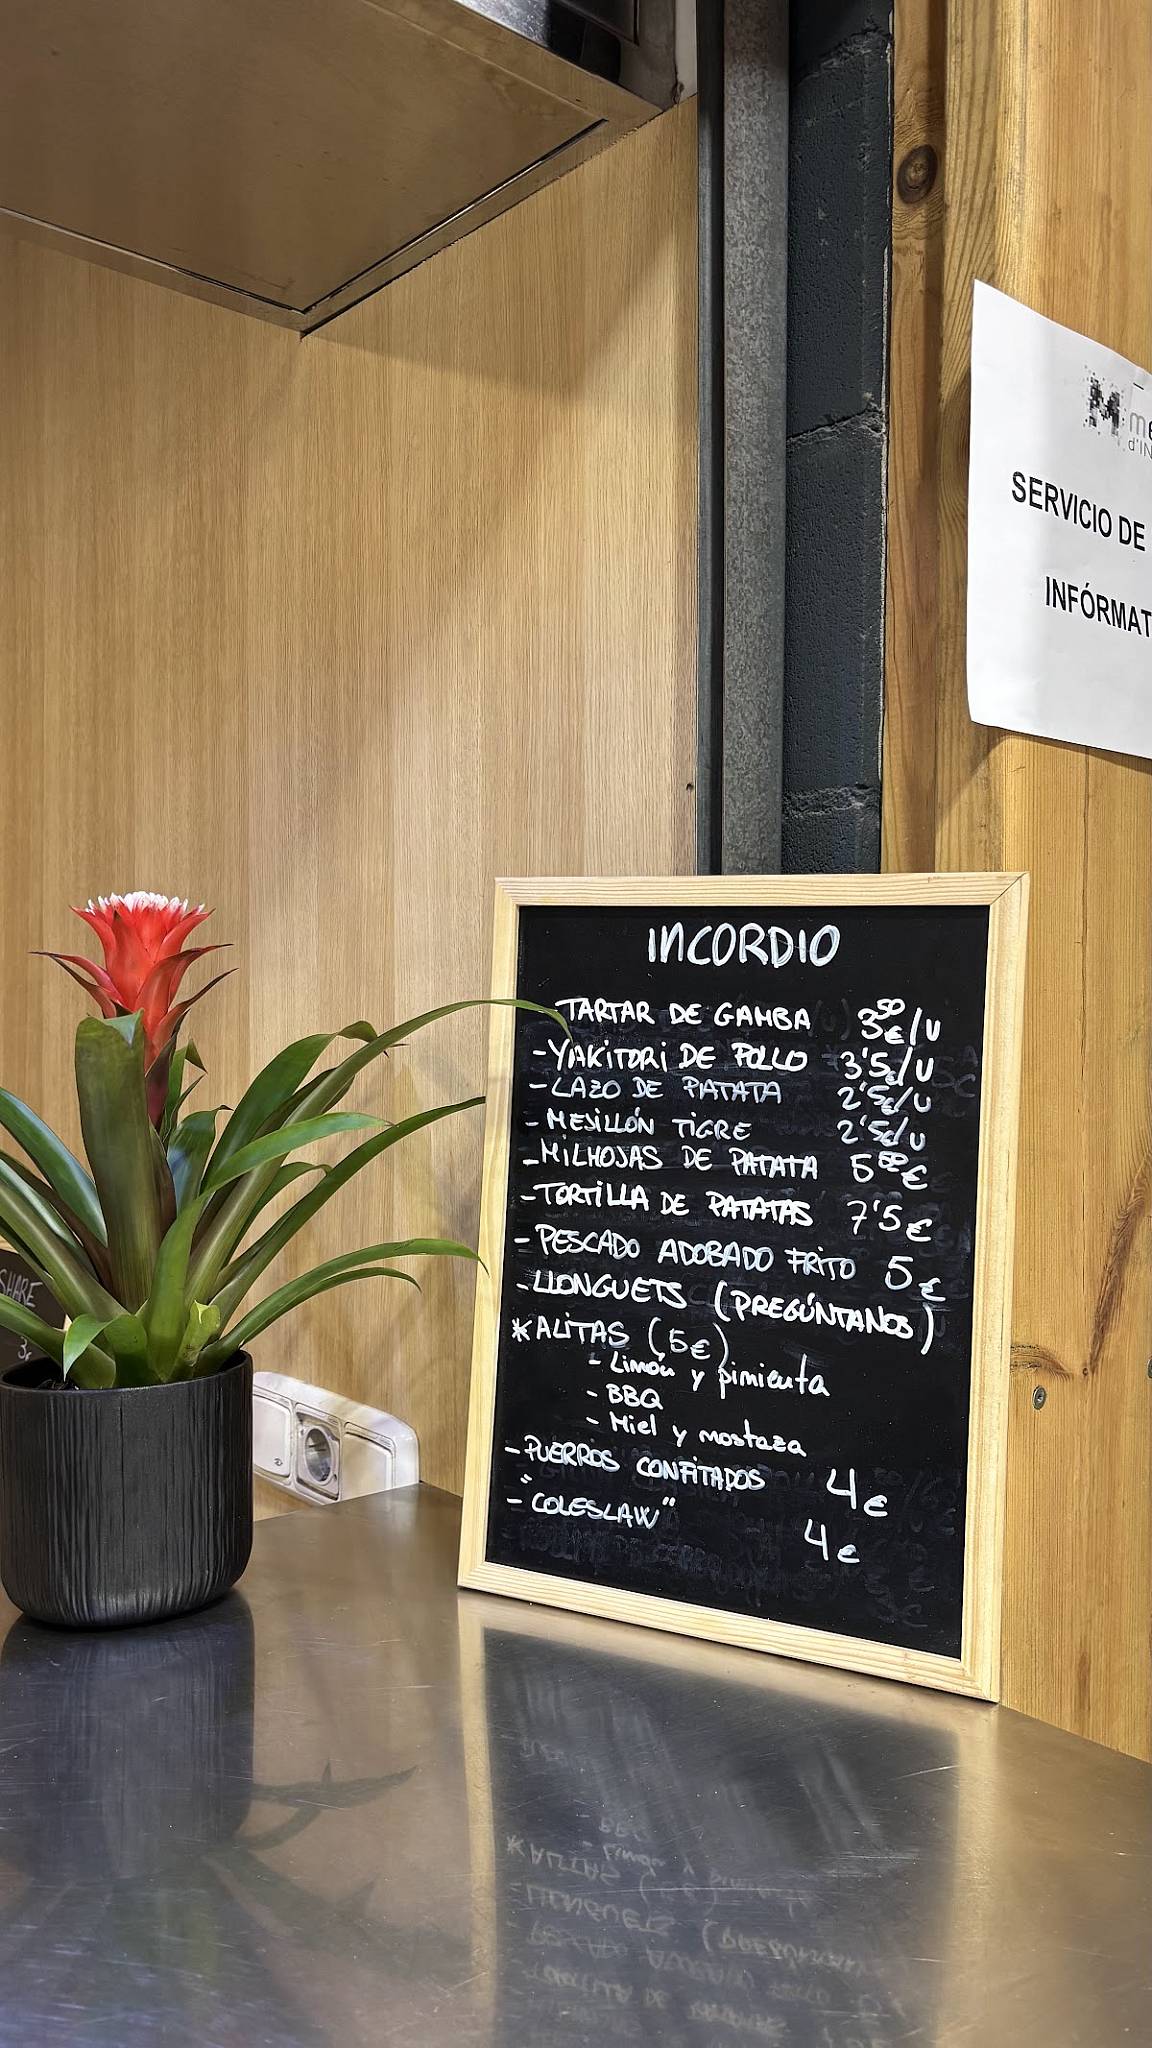 me
d'IN
SERVICIO DE
INFÓRMAT
INCORDIO
TARTAR DE GAMBA 3,50€/U
-YAKITORI DE POLLO 3'5€/U
-LAZO DE PATATA 2'5€/U
-MEJILLÓN TIGRE 2'5€/U
-MILHOJAS DE PATATA 5,50€
-TORTILLA DE PATATAS 7'5€
-PESCADO ADOBADO FRITO 5€
-LLONGUETS (PREGÚNTANOS)
*ALITAS (5€)
- Limón y pimienta
- BBQ
- Miel y mostaza
-PUERROS CONFITADOS 4€
-"COLESLAW" 4€
SHARE
3€